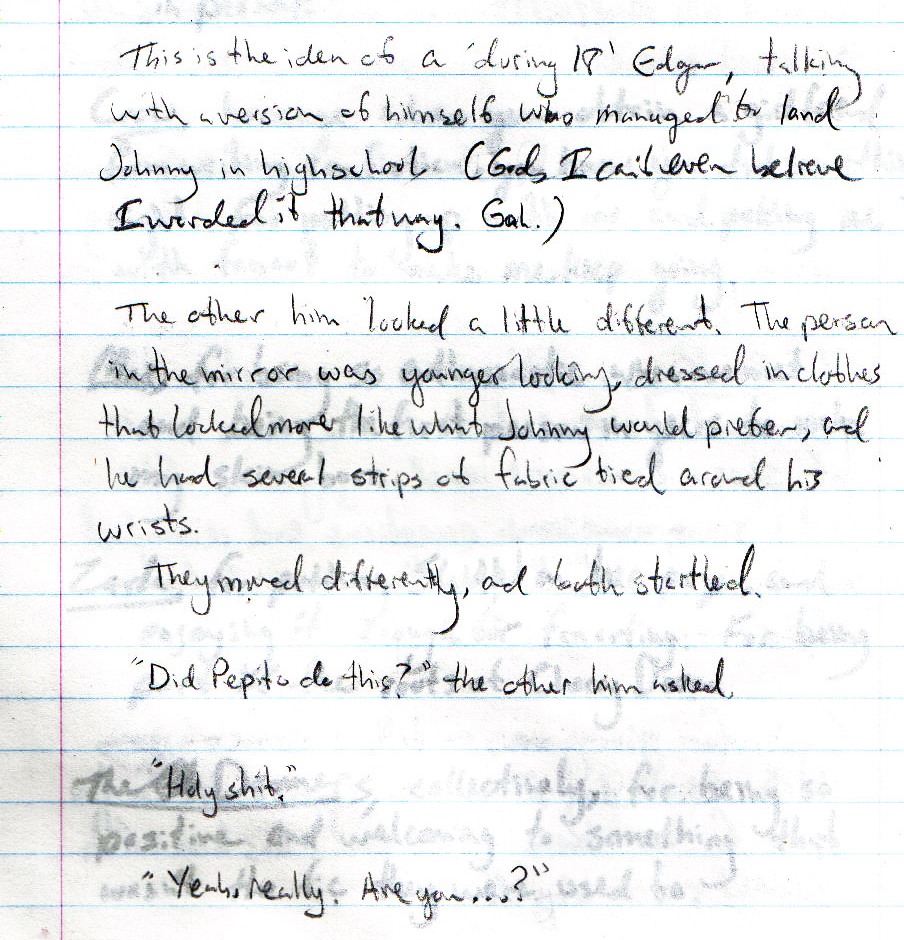 This is the idea of a 'during 18' Edgar, talking
with a version of himself who managed to land
Johnny in highschool. (God, I can't even believe
I worded it that way. Gah.)
The other him looked a little different. The person
in the mirror was younger looking, dressed in clothes
that looked more like what Johnny would prefer, and
he had several strips of fabric tied around his
wrists.
They moved differently, and both startled.
"Did Pepito do this?" the other him asked.
"Holy shit."
"Yeah, really. Are you...?"